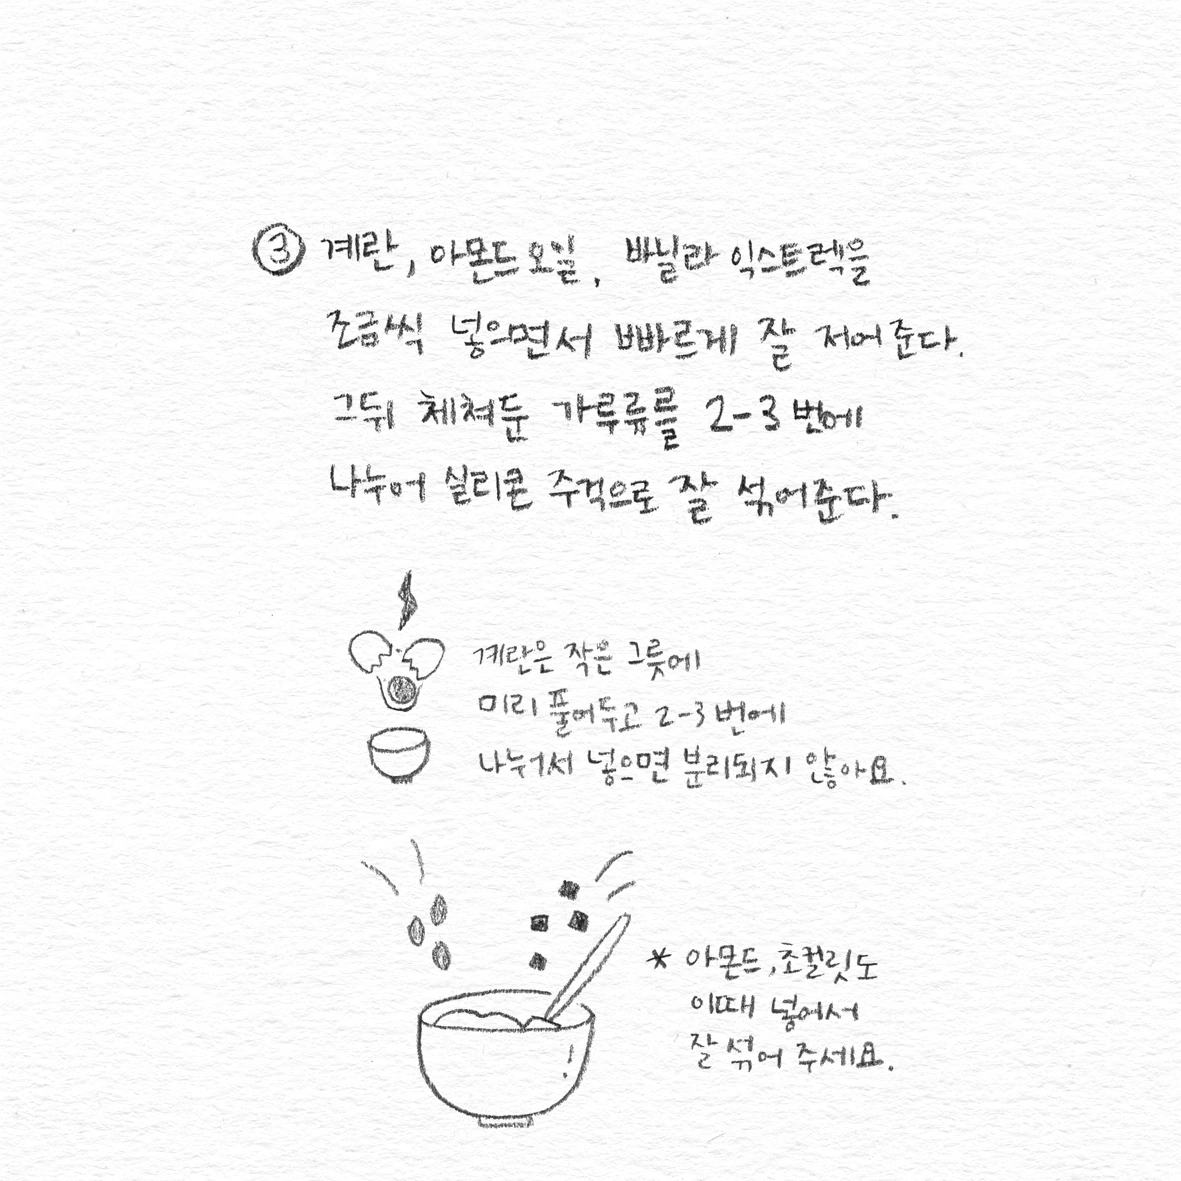 ③ 계란, 아몬드 오일, 바닐라 익스트렉을
조금씩 넣으면서 빠르게 잘 저어준다.
그뒤 체쳐둔 가루류를 2-3번에
나누어 실리콘 주걱으로 잘 섞어준다.
계란은 작은 그릇에
미리 풀어두고 2-3번에
나눠서 넣으면 분리되지 않아요.
* 아몬드, 초컬릿도
이때 넣어서
잘 섞어 주세요.